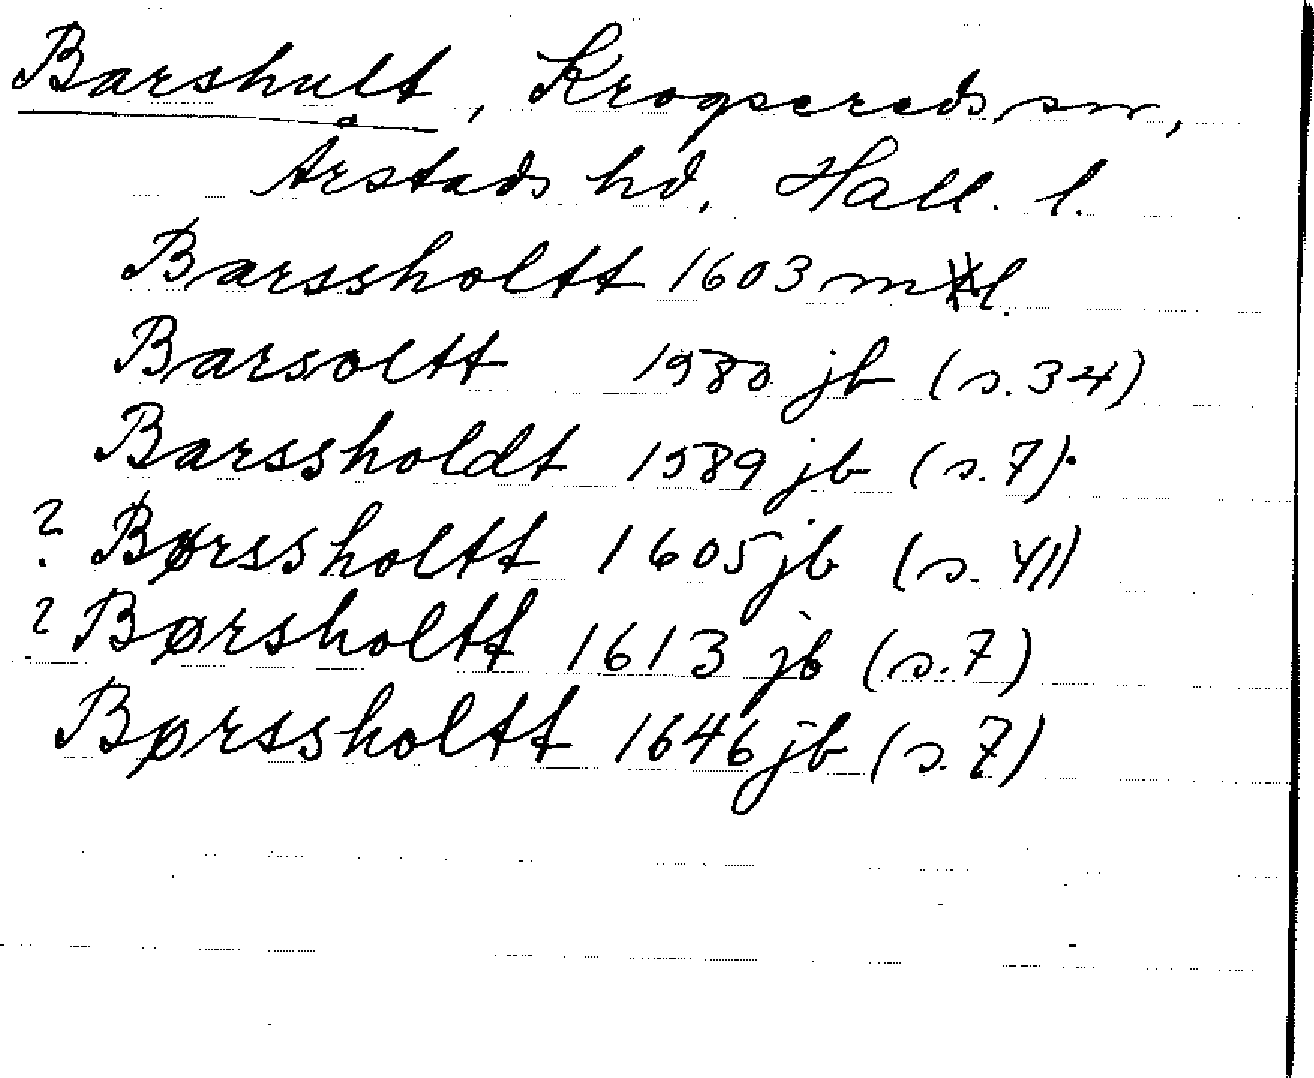 Barshult, Krogsereds sn,
Årstads hd, Hall. l.
Barssholtt 1603 mtl.
Barsoltt 1580 jb (s. 34)
Barssholdt 1589 jb (s. 7).
? Børssholtt 1605 jb (s. 411)
? Børsholtt 1613 jb (s. 7)
Børssholtt 1646 jb (s. 7)